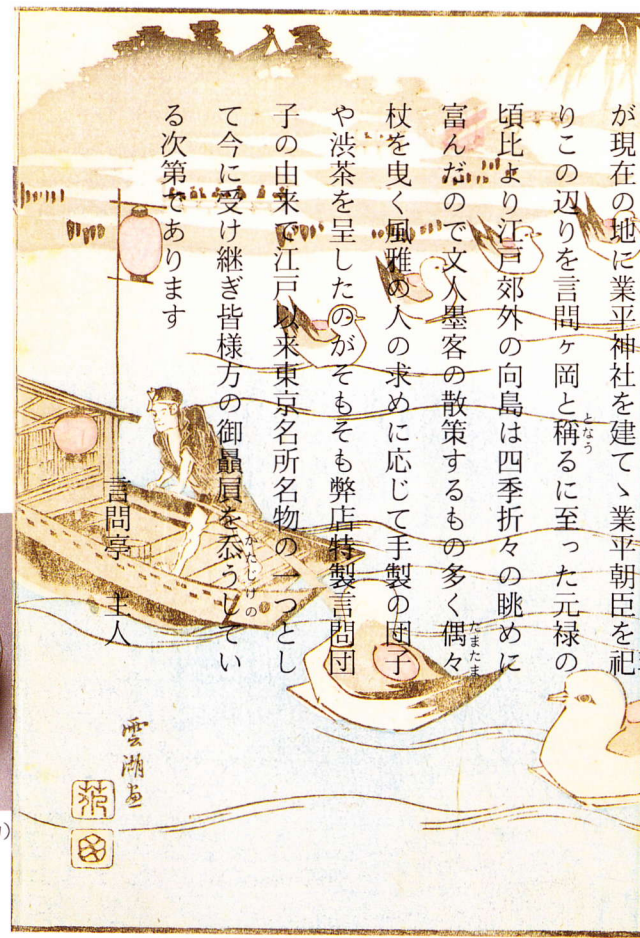 が現在の地に業平神社を建てゝ業平朝臣を祀
りこの辺りを言問ヶ岡と稱るに至った元禄の
となう
頃比より江戸郊外の向島は四季折々の眺めに
富んだので文人墨客の散策するもの多く偶々
たまたま
杖を曳く風雅の人の求めに応じて手製の団子
や渋茶を呈したのがそもそも弊店特製言問団
子の由来で江戸以来東京名所名物の一つとし
て今に受け継ぎ皆様方の御贔屓を忝うしてい
かたじけの
る次第であります
言問亭 主人
雲湖画